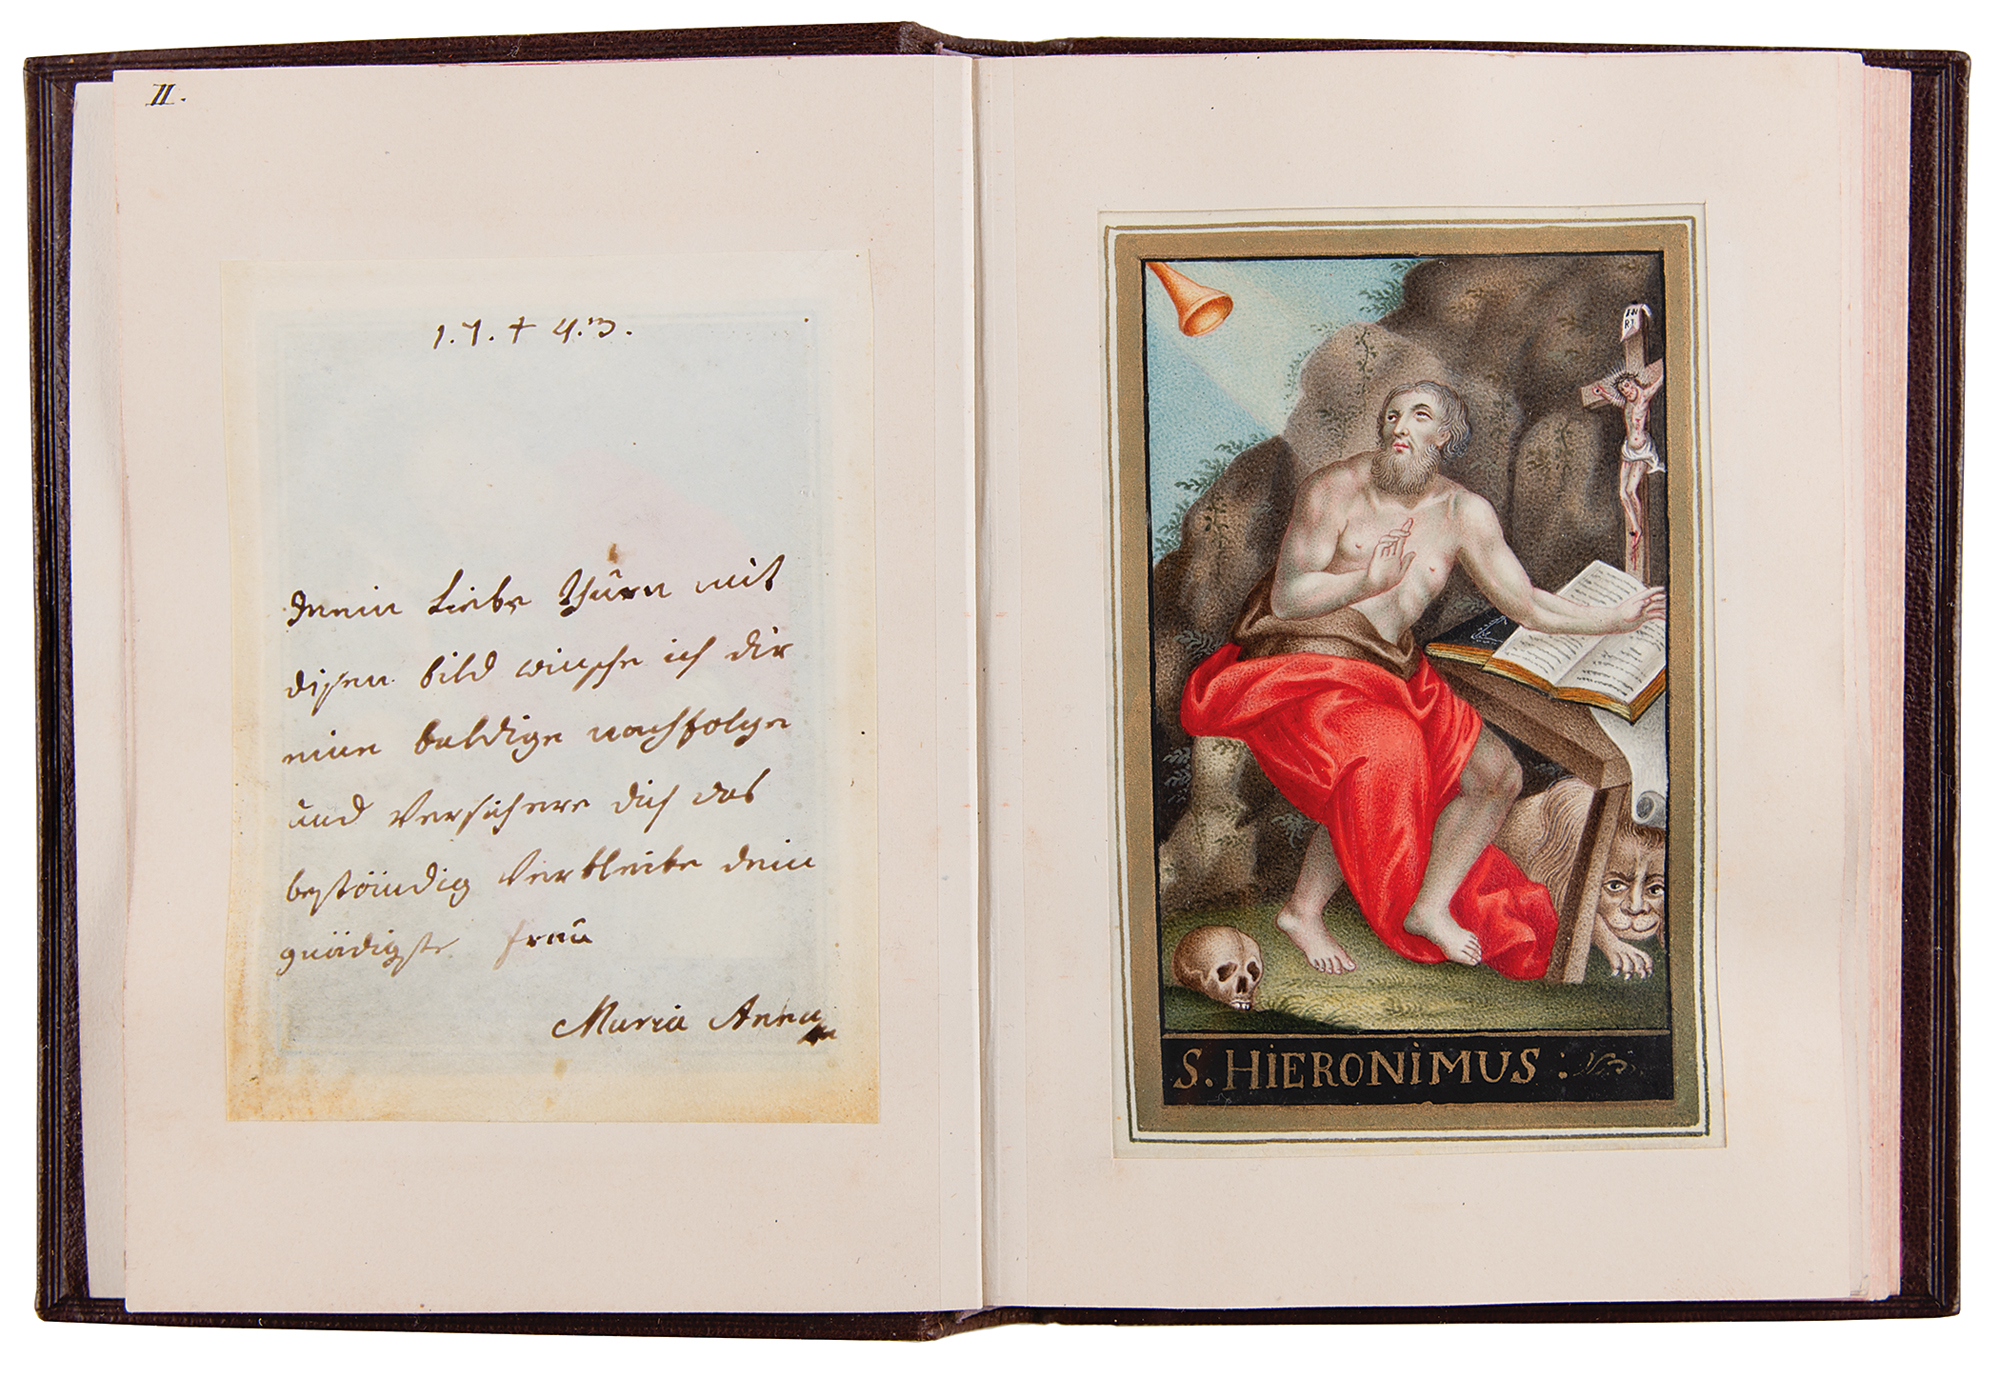 II.
1.7.+ 43.
Mein liebe thürn mit
disen bild winsche ich dir
eine baldige nachfolge
und Versichere dich das
beständig Verbleibe dein
gnädigste frau
Maria Anna
IN
RI
S. HIERONIMUS :